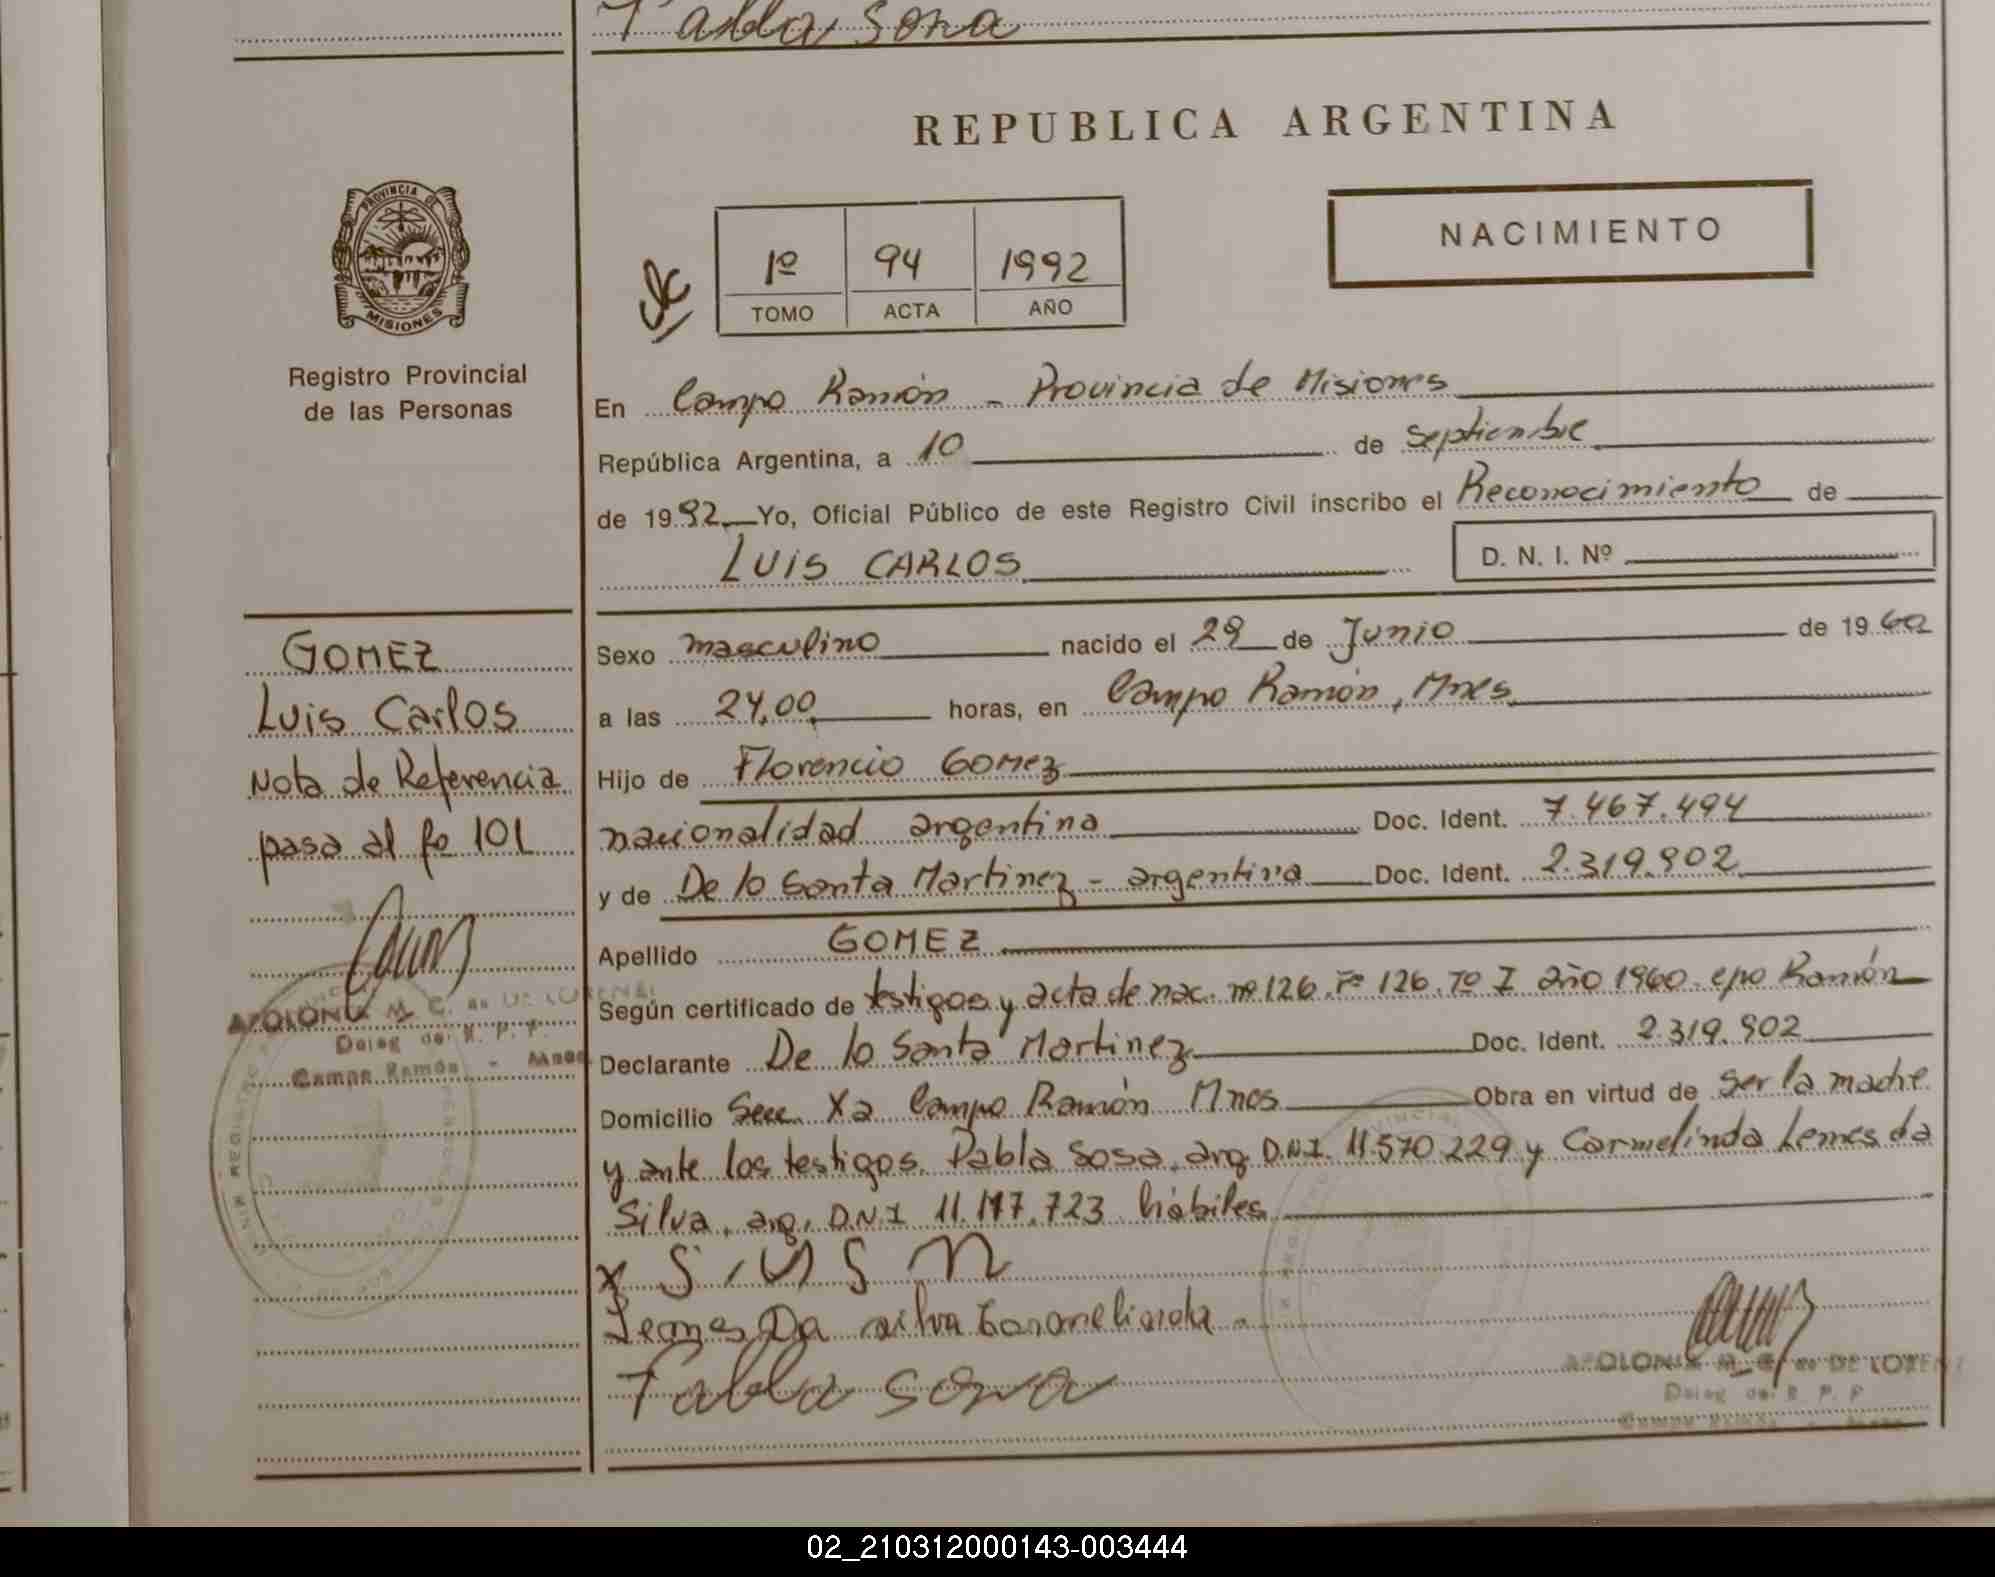 Pabla Sosa
REPUBLICA ARGENTINA
PROVINCIA DE
MISIONES
Registro Provincial
de las Personas
1º 94 1992
TOMO ACTA AÑO
NACIMIENTO
En Campo Ramón - Provincia de Misiones
República Argentina, a 10 de Septiembre
de 1992 Yo, Oficial Público de este Registro Civil inscribo el Reconocimiento de
LUIS CARLOS D. N. I. Nº
GOMEZ
Luis Carlos
Nota de Referencia
pasa al fo 101
Sexo masculino nacido el 29 de Junio de 1960
a las 24,00 horas, en Campo Ramón, Mnes
Hijo de Florencio GOMEZ
nacionalidad argentina Doc. Ident. 7.467.494
y de De lo Santa Martinez - argentina Doc. Ident. 2.319.902
Apellido GOMEZ
Según certificado de testigos y acta de nac. nº 126. Fº 126. Tº I año 1960. cpo Ramón
Declarante De lo Santa Martinez Doc. Ident. 2.319.902
Domicilio Secc. Xa Campo Ramón Mnes Obra en virtud de ser la madre
y ante los testigos. Pabla Sosa, arg. D.N.I. 11.570.229 y Carmelinda Lemes da
Silva, arg. D.N.I 11.117.723 hábiles
Lemes Da silva Carmelinda
Pabla Sosa
APOLONIA M. C. de DE LORENZI
Deleg del R. P. P.
Campo Ramón - Mnes
APOLONIA M. C. de DE LOREN
Deleg del R. P. P
Campo Ramón - Mnes
02_210312000143-003444